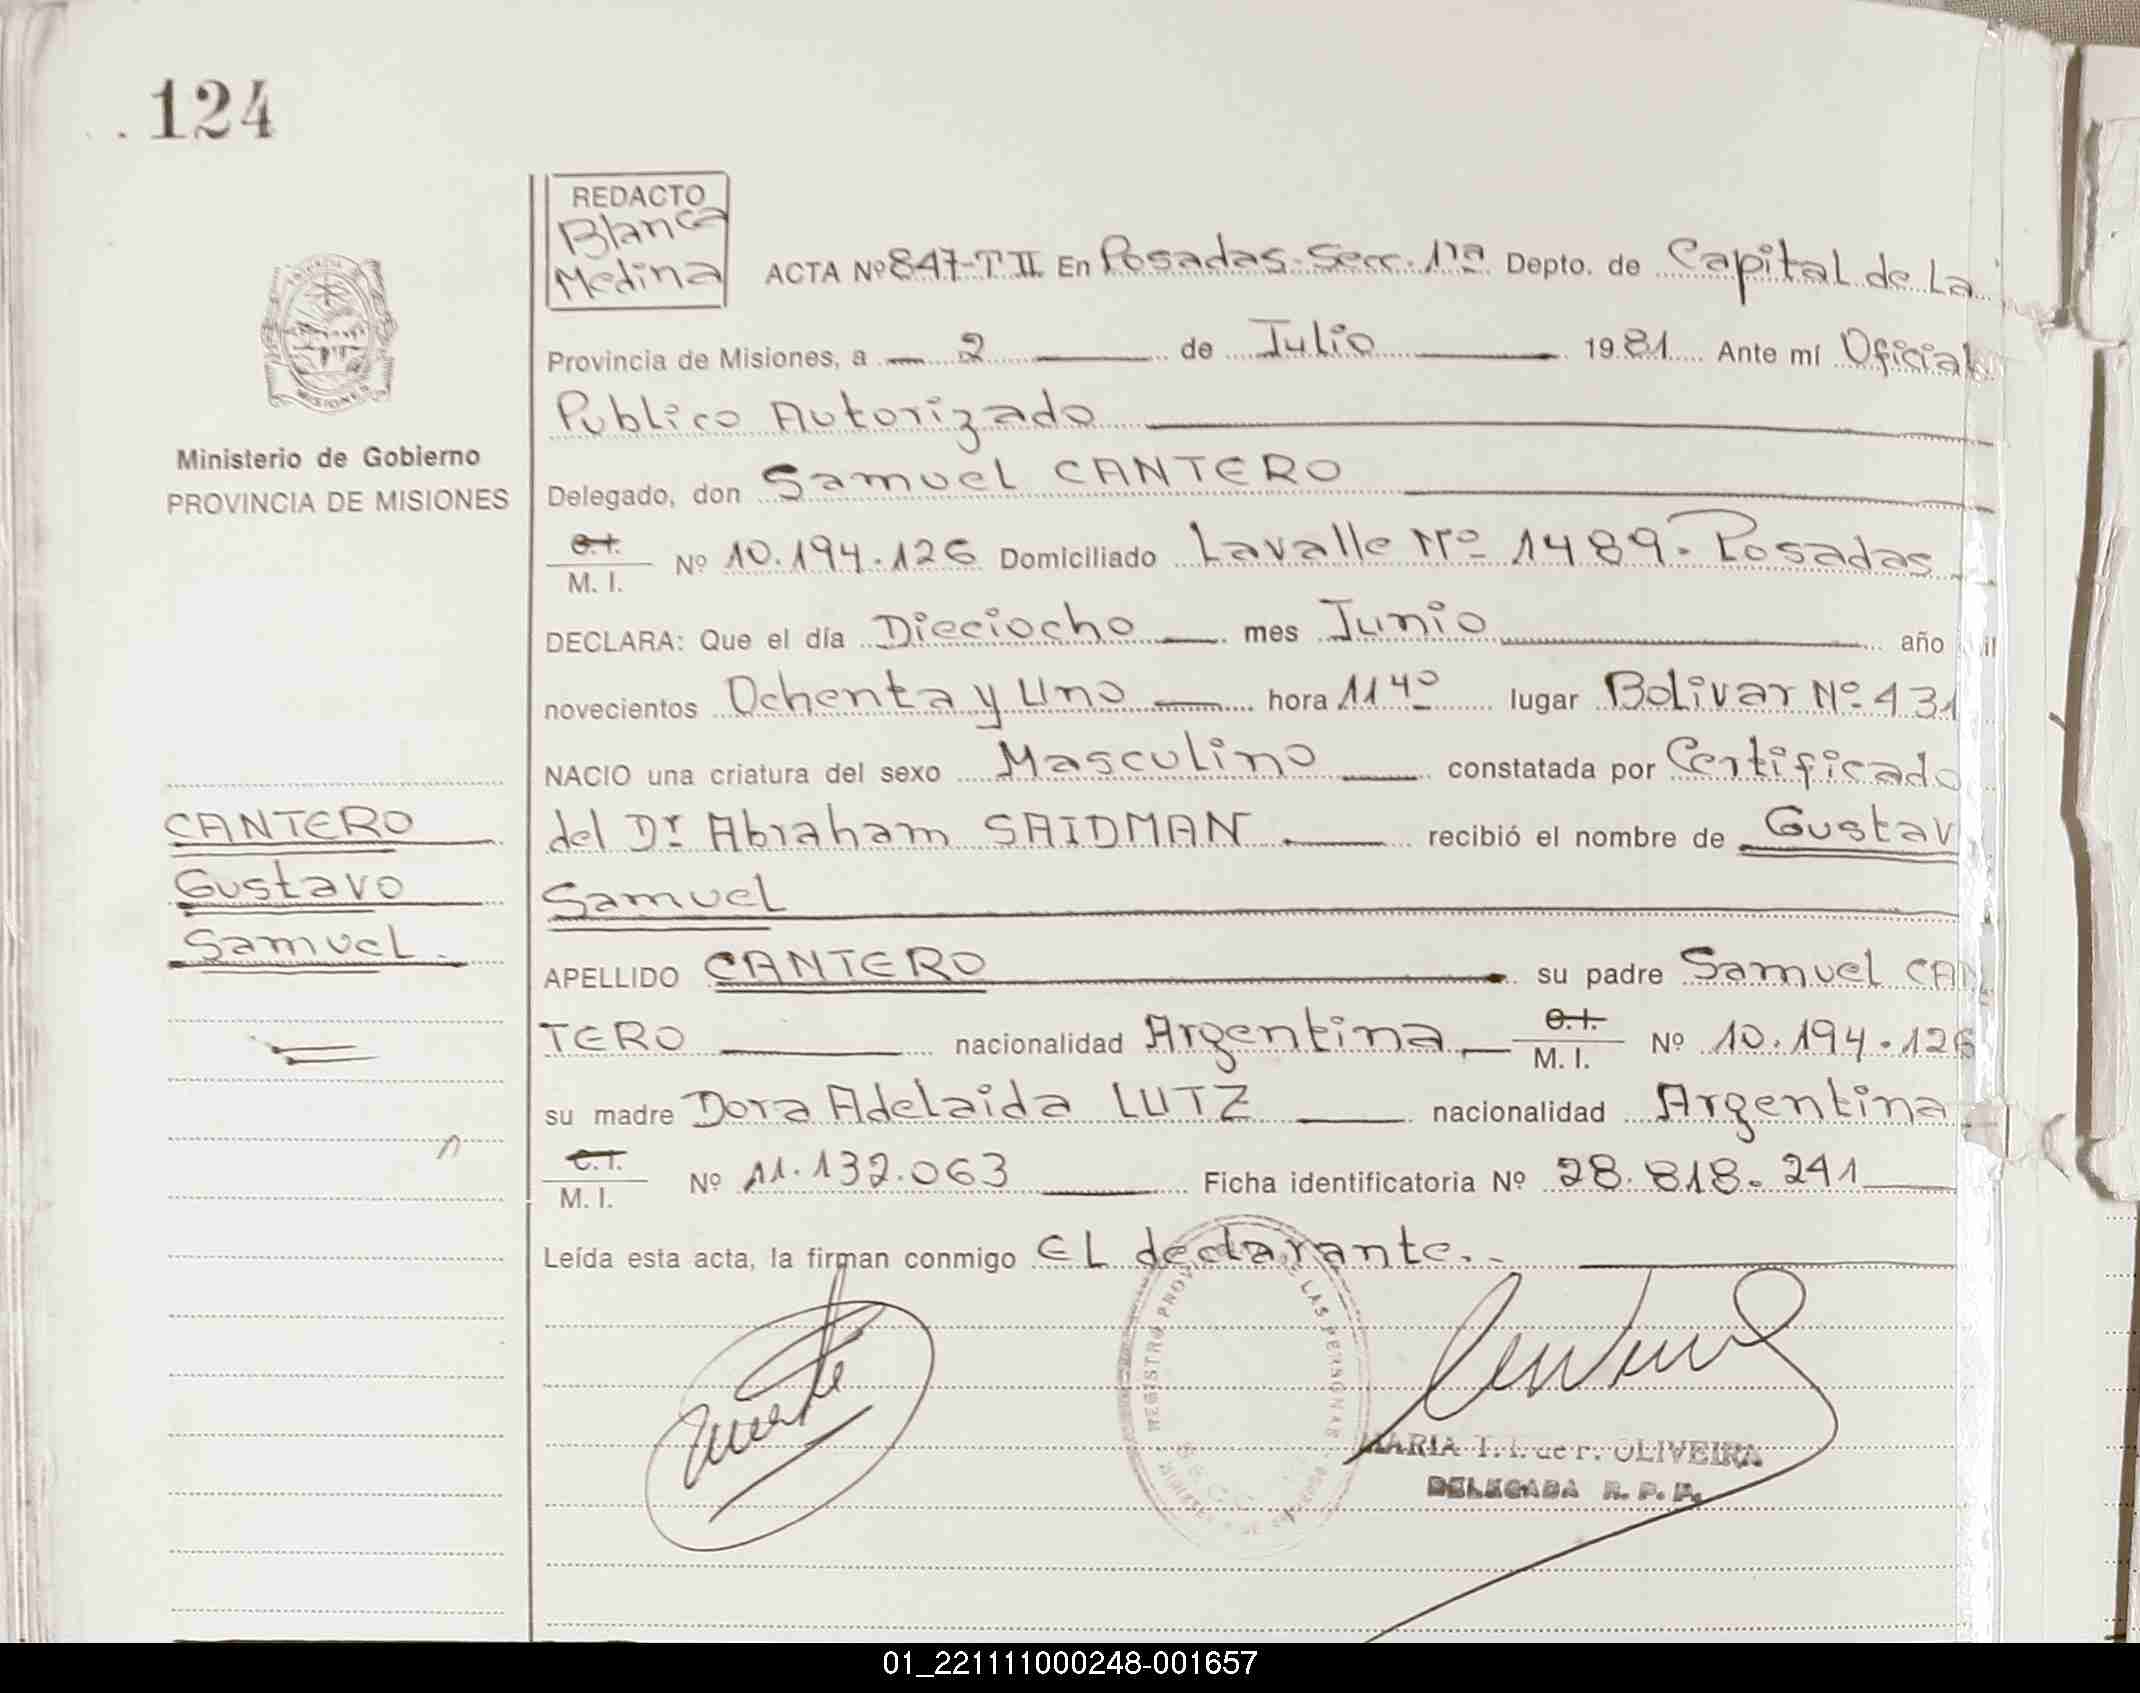 124
REDACTO
Blanca
Medina
ACTA Nº 847-T II En Posadas-Secc. 1ra Depto. de Capital de La
Provincia de Misiones, a 2 de Julio 1981 Ante mí Oficial
Publico Autorizado
Ministerio de Gobierno
PROVINCIA DE MISIONES
Delegado, don Samuel CANTERO
C.I.
M. I. Nº 10.194.126 Domiciliado Lavalle Nº 1489. Posadas
DECLARA: Que el día Dieciocho mes Junio año
novecientos Ochenta y Uno hora 11 40 lugar Bolivar Nº 431
NACIO una criatura del sexo Masculino constatada por Certificado
CANTERO
Gustavo
Samuel.
del Dr Abraham SAIDMAN recibió el nombre de Gustav
Samuel
APELLIDO CANTERO su padre Samuel CAN
TERO nacionalidad Argentina C.I.
M. I. Nº 10.194.126
su madre Dora Adelaida LUTZ nacionalidad Argentina
C.I.
M. I. Nº 11.132.063 Ficha identificatoria Nº 28.818.241
Leída esta acta, la firman conmigo EL declarante.
REGISTRO PROV DE LAS PERSONAS
MARIA T. I. de P. OLIVEIRA
DELEGADA R. P. P.
01_221111000248-001657